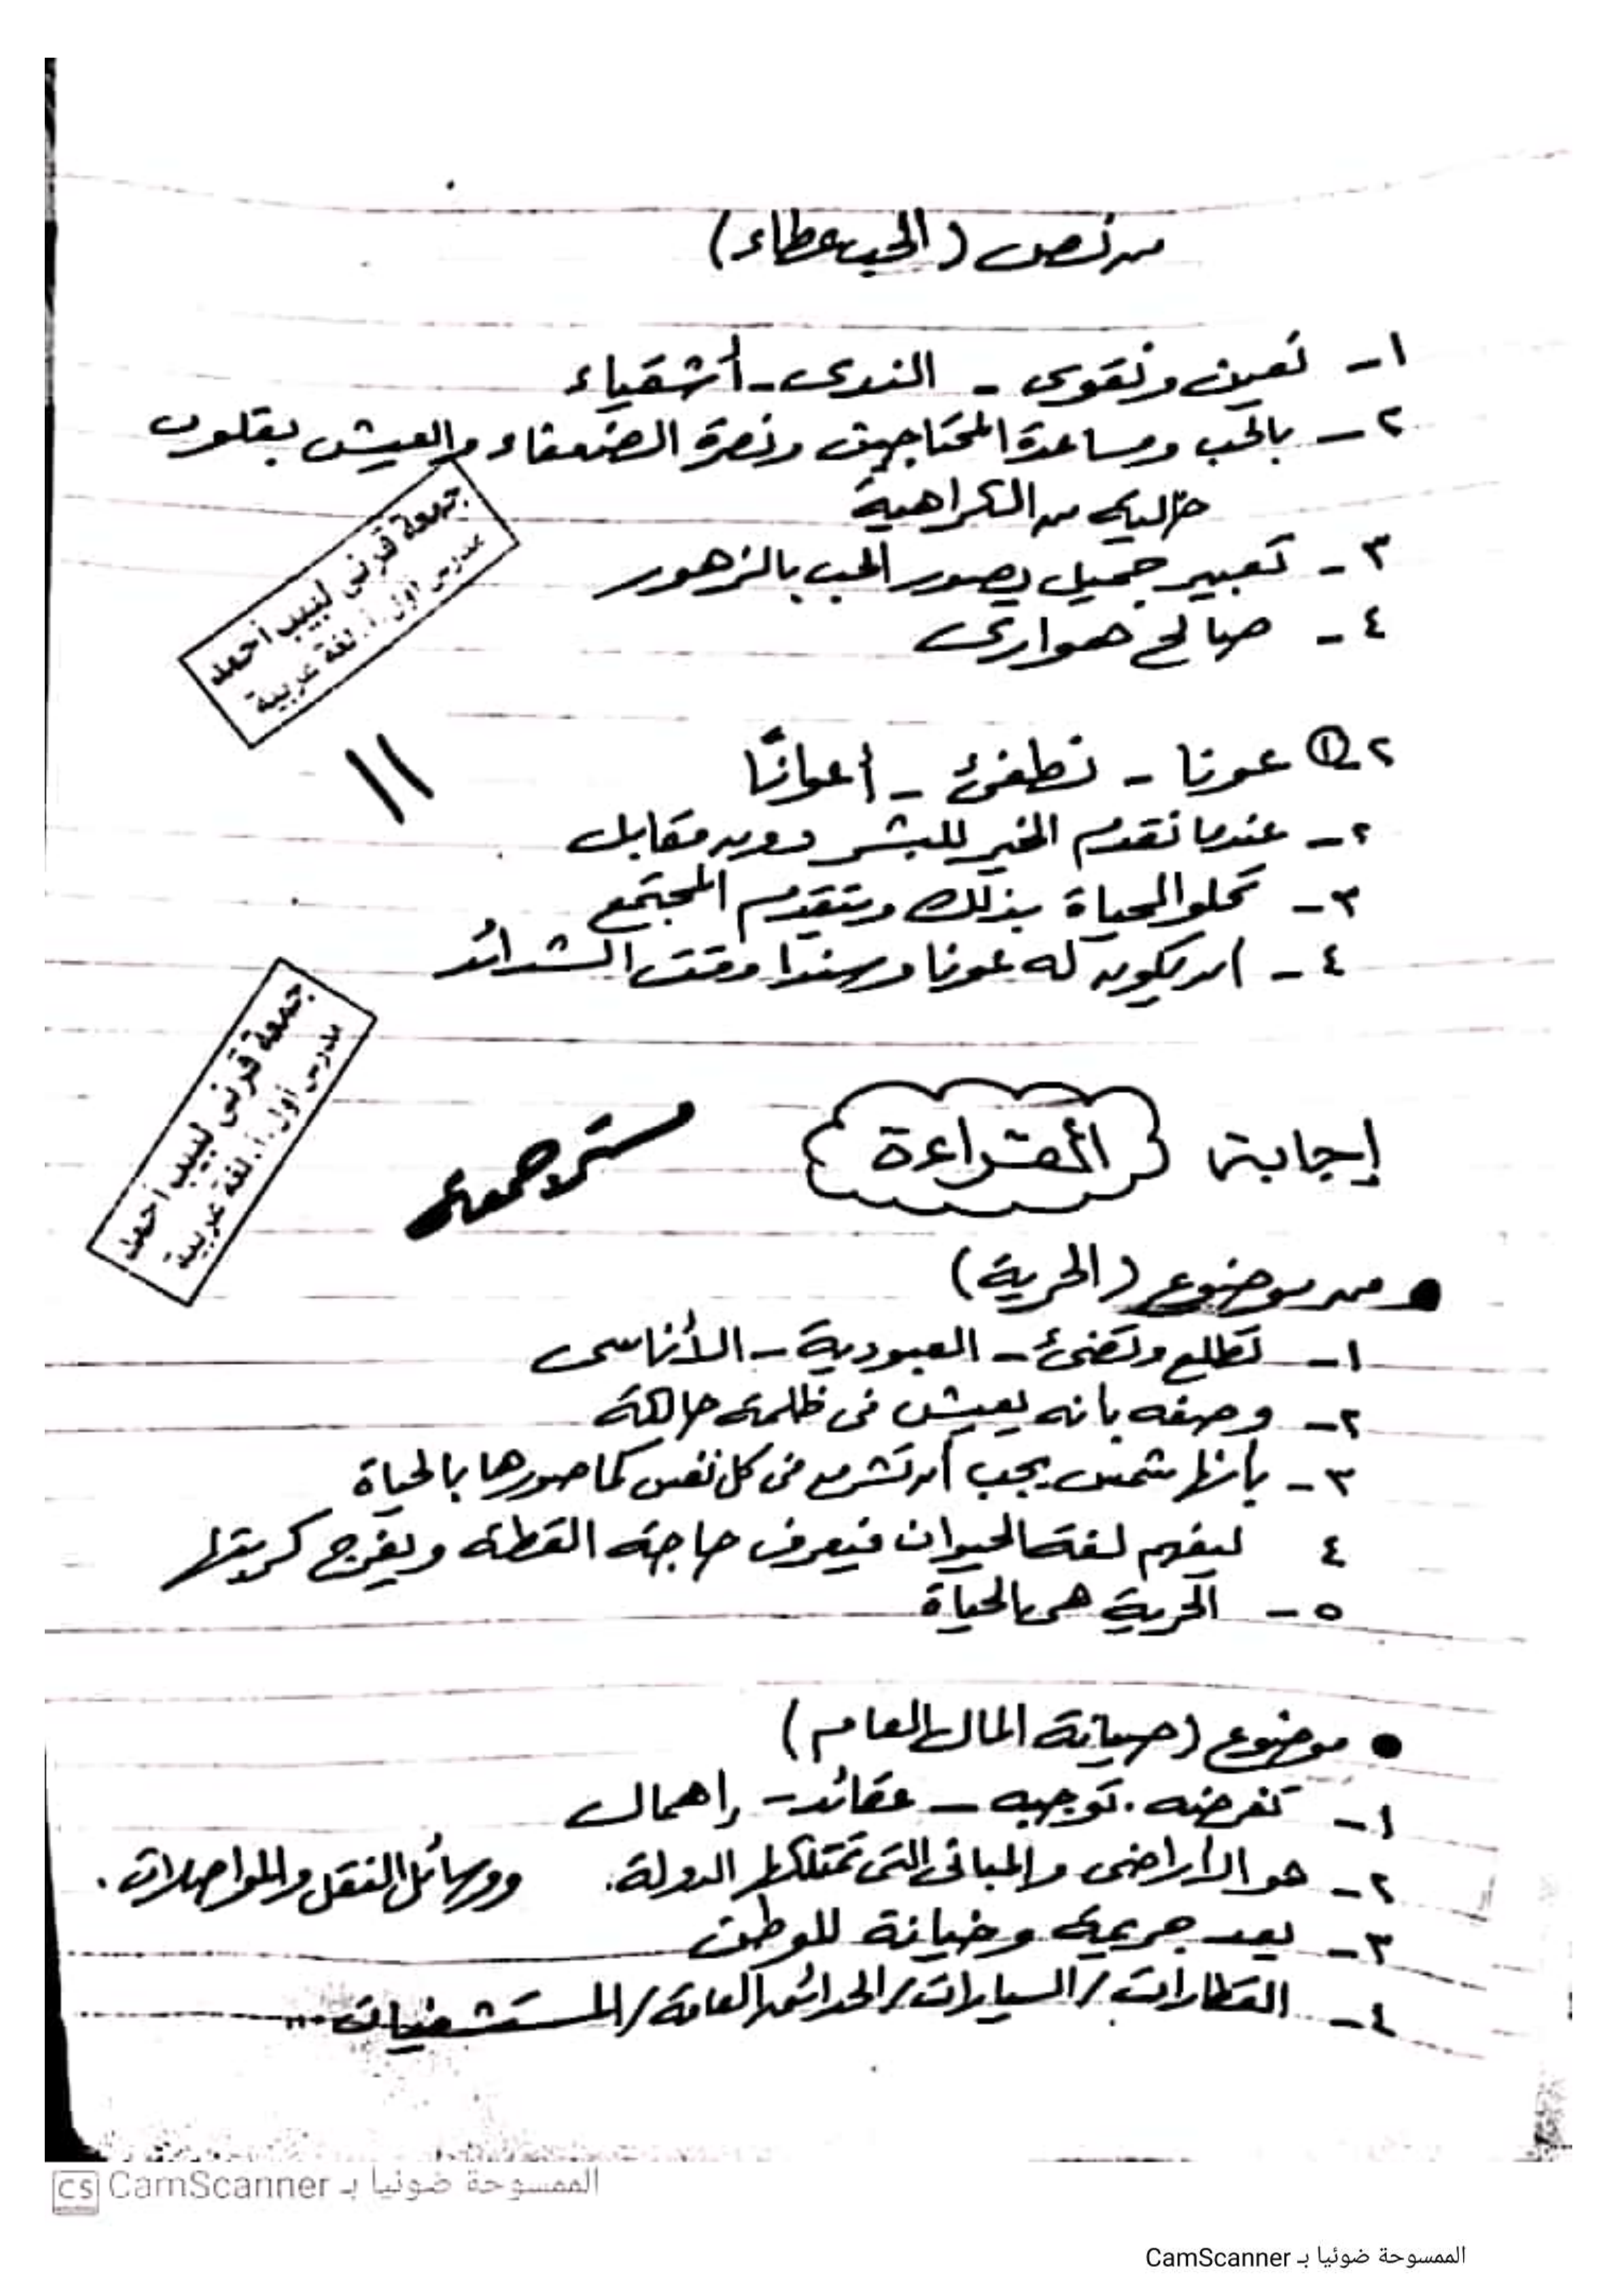 من نص (الحب عطاء)
١- تعين وتقوى - الندى - أشقياء
٢- بالحب ومساعدة المحتاجين ونصرة الضعفاء والعيش بقلوب
خالية من الكراهية
٣- تعبير جميل يصور الحب بالزهور
٤- صالح هوارى
جمعة قرنى لبيب أحمد
مدرس أول أ. لغة عربية
١١
٢- ① عونا - نطفئ - أعوانًا
٢- عندما نقدم الخير للبشر دون مقابل
٣- تحلو الحياة بذلك ويتقدم المجتمع
٤- أن يكون له عونا وسندا وقت الشدائد
جمعة قرنى لبيب أحمد
مدرس أول أ. لغة عربية
إجابة القراءة
مستر جمعة
• من موضوع (الحرية)
١- تطلع وتضئ - العبودية - الأناسى
٢- وصفه بانه يعيش فى ظلمة حالكة
٣- بأنها شمس يجب أن تشرق فى كل نفس كما صورها بالحياة
٤ ليفهم لغة الحيوان فيعرف حاجة القطة ويفرج كربتها
٥- الحرية هى الحياة
• موضوع (صيانة المال العام)
١- تفرضه. توجبه - عقائد - إهمال
٢- هو الأراضى والمبانى التى تمتلكها الدولة. ووسائل النقل والمواصلات.
٣- يعد جريمة وخيانة للوطن
٤- القطارات / السيارات / الحدائق العامة / المستشفيات...
CS CamScanner الممسوحة ضوئيا بـ
الممسوحة ضوئيا بـ CamScanner